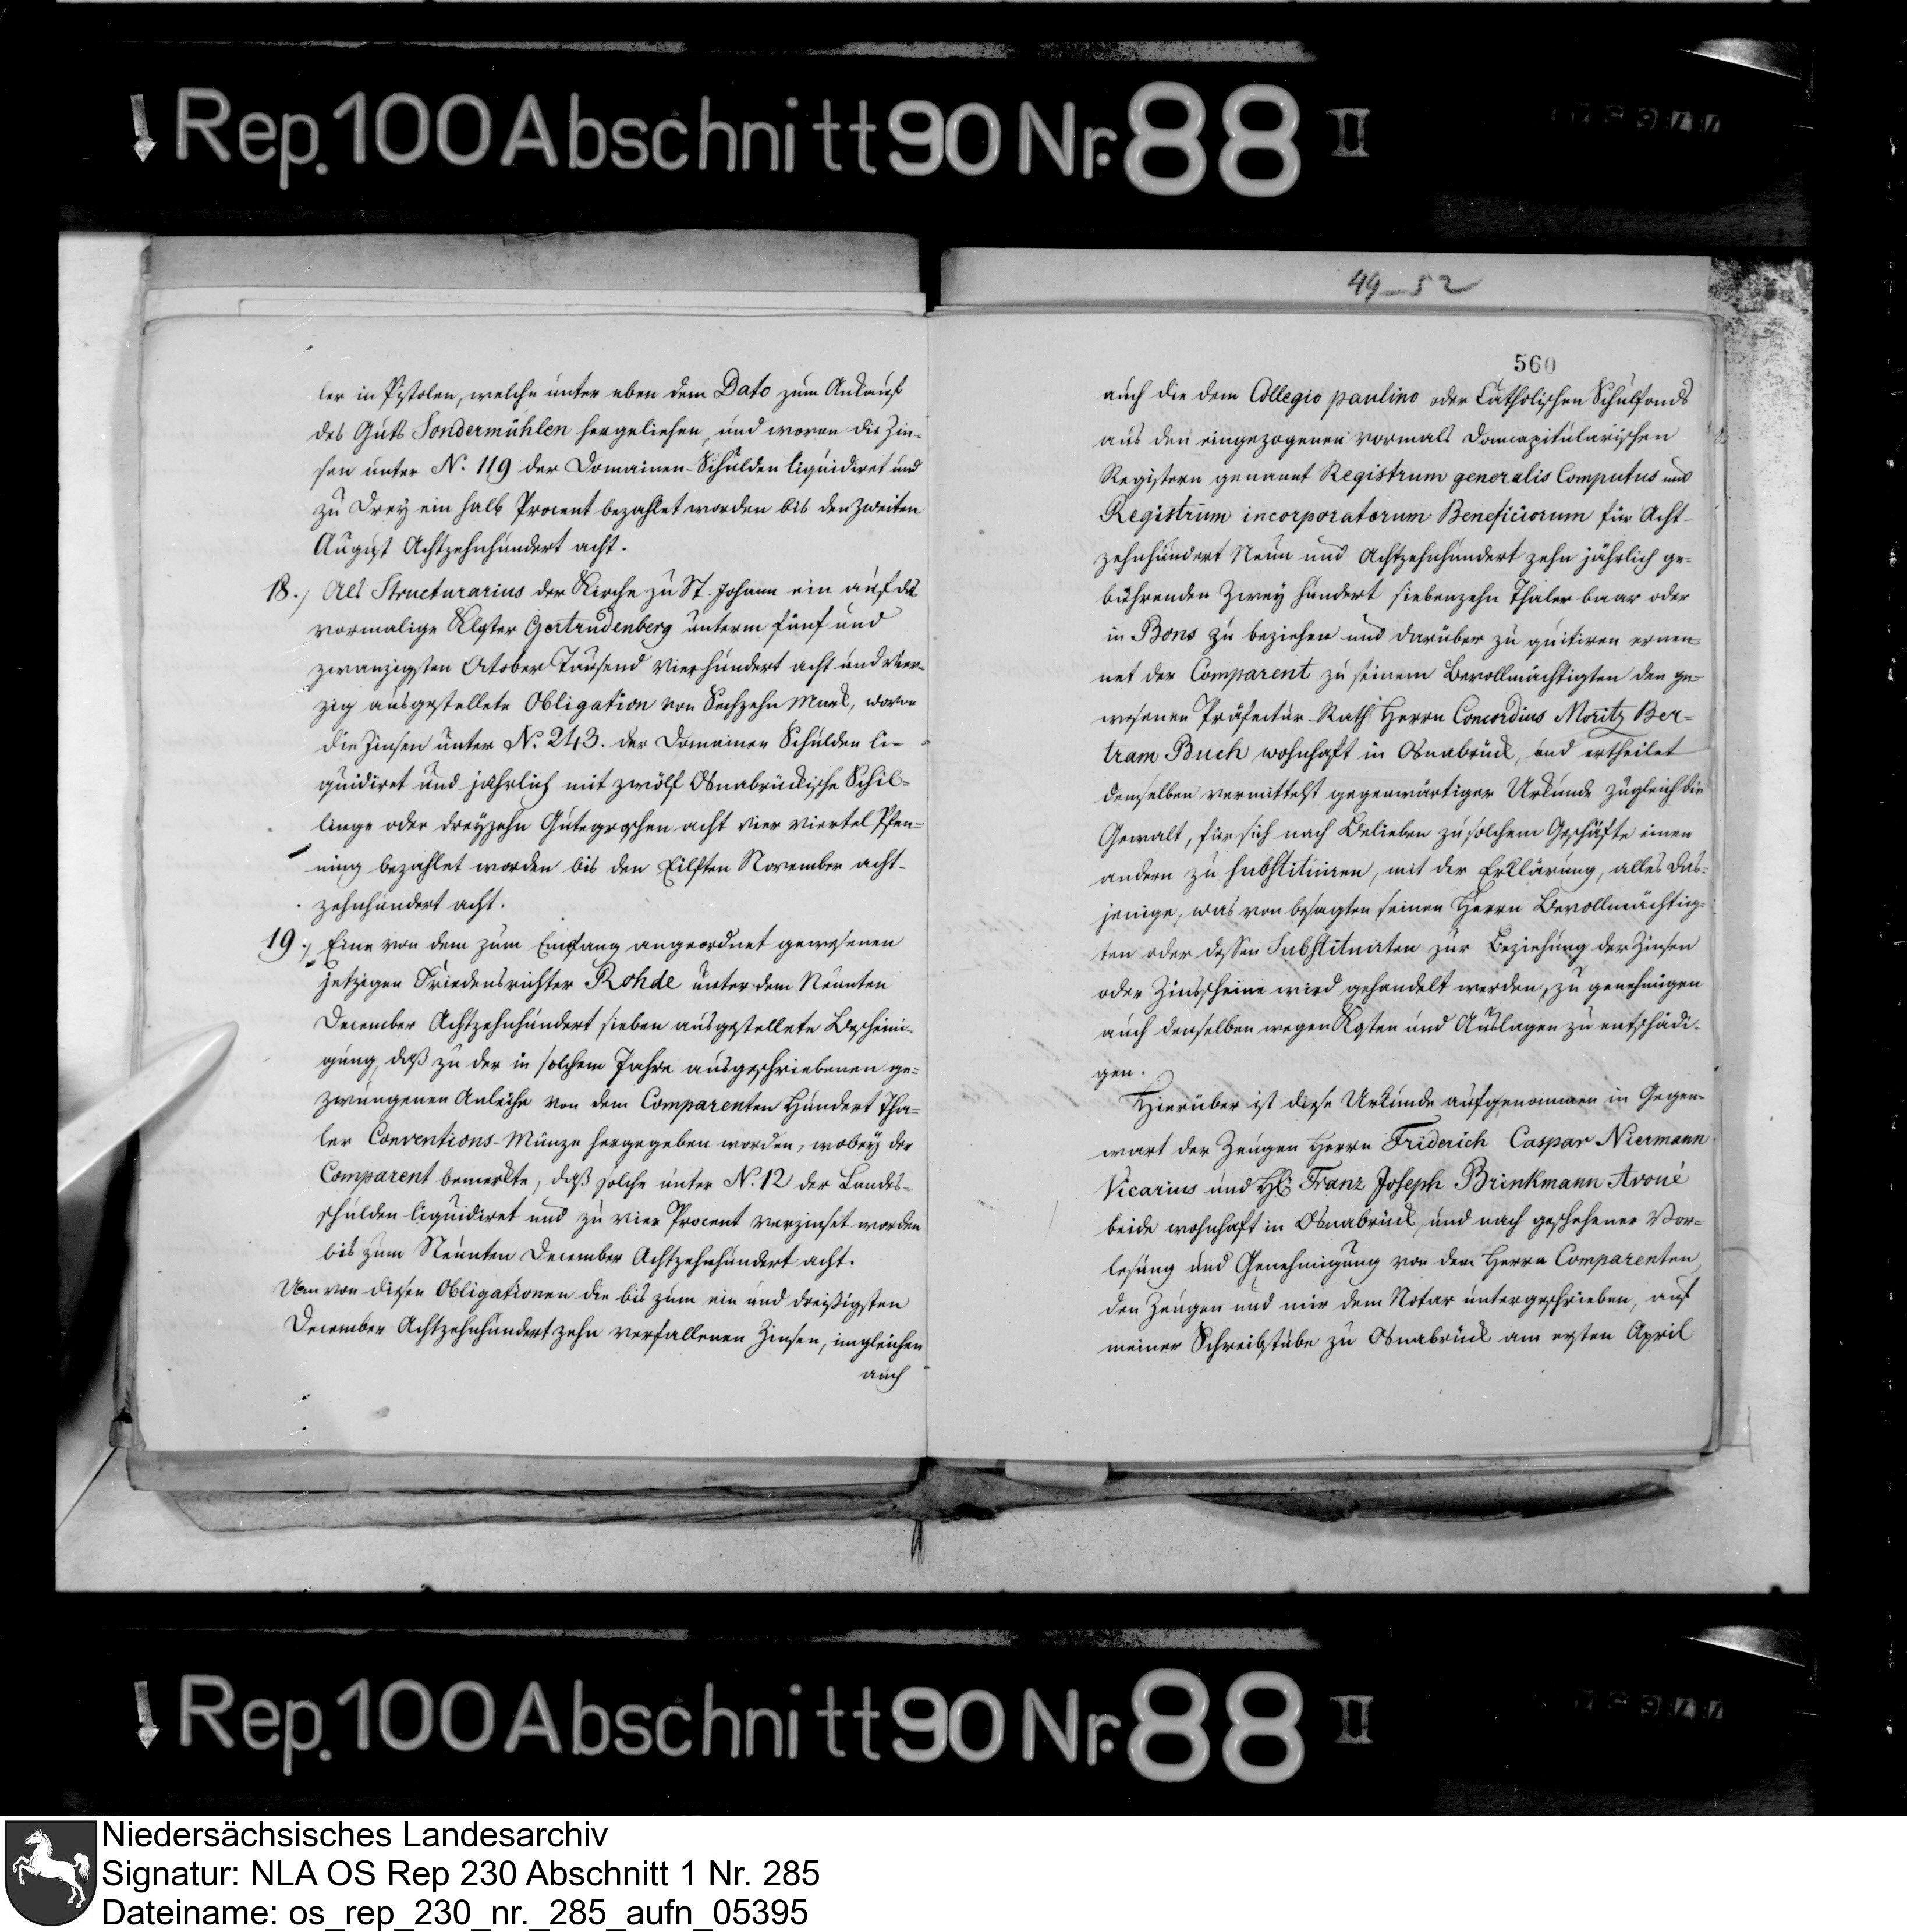 Rep. 100 Abschnitt 90 Nr. 88 II
ler in Pistolen, welche unter eben dem Dato zum Ankauf
des Guts Sondermühlen hergeliehen, und wovon die Zin-
sen unter N. 119 der Domainen-Schulden liquidiret und
zu Drey ein halb Procent bezahlet worden bis den zweiten
August Achtzehnhundert acht.
18.) Als Structurarius der Kirche zu St. Johann ein auf das
vormalige Kloster Gertrudenberg unterm fünf und
zwanzigsten October Tausend vierhundert acht und vier-
zig ausgestellete Obligation von Sechzehn Mark, wovon
die Zinsen unter N. 243. der Domainen Schulden li-
quidiret und jährlich mit zwölf Osnabrückische Schil-
linge oder dreyzehn Gutegroschen acht vier viertel Pfen-
ning bezahlet worden bis den Eilften November acht-
zehnhundert acht.
19.) Eine von dem zum Empfang angeordnet gewesenen
jetzigen Friedensrichter Rohde unter dem Neunten
December Achtzehnhundert sieben ausgestellete Bescheini-
gung, daß zu der in solchem Jahre ausgeschriebenen ge-
zwungenen Anleihe von dem Comparenten Hundert Tha-
ler Conventions-Münze hergegeben worden, wobey der
Comparent bemerkte, daß solche unter N. 12 der Landes-
schulden liquidiret und zu vier Procent verzinset worden
bis zum Neunten December Achtzehnhundert acht.
Um von diesen Obligationen die bis zum ein und dreißigsten
December Achtzehnhundert zehn verfallenen Zinsen, imgleichen
auch
49-52
560
auch die dem Collegio paulino oder Catholischen Schulfonds
aus den eingezogenen vormals Domcapitularischen
Registern genannt Registrum generalis Computus und
Registrum incorporatorum Beneficiorum für Acht-
zehnhundert Neun und Achtzehnhundert zehn jährlich ge-
bührenden Zwey hundert siebenzehn Thaler baar oder
in Bons zu beziehen und darüber zu quitiren ernen-
net der Comparent zu seinem Bevollmächtigten den ge-
wesenen Präfectur-Rath Herrn Concordius Moritz Ber-
tram Buch wohnhaft in Osnabrück, und ertheilet
demselben vermittelst gegenwärtiger Urkunde zugleich die
Gewalt, für sich nach Belieben zu solchem Geschäfte einen
andern zu substituiren, mit der Erklärung, alles das-
jenige, was von besagten seinen Herrn Bevollmächtig-
ten oder dessen Substituirten zur Beziehung der Zinsen
oder Zinsscheine wird gehandelt werden, zu genehmigen
auch denselben wegen Kosten und Auslagen zu entschädi-
gen.
Hierüber ist diese Urkunde aufgenommen in Gegen-
wart der Zeugen Herrn Friderich Caspar Niermann
Vicarius und H. Franz Joseph Brinkmann Avoué
beide wohnhaft in Osnabrück, und nach geschehener Vor-
lesung und Genehmigung von dem Herrn Comparenten,
den Zeugen und mir dem Notar unterschrieben, auf
meiner Schreibstube zu Osnabrück am ersten April
Rep. 100 Abschnitt 90 Nr. 88 II
Niedersächsisches Landesarchiv
Signatur: NLA OS Rep 230 Abschnitt 1 Nr. 285
Dateiname: os_rep_230_nr._285_aufn_05395